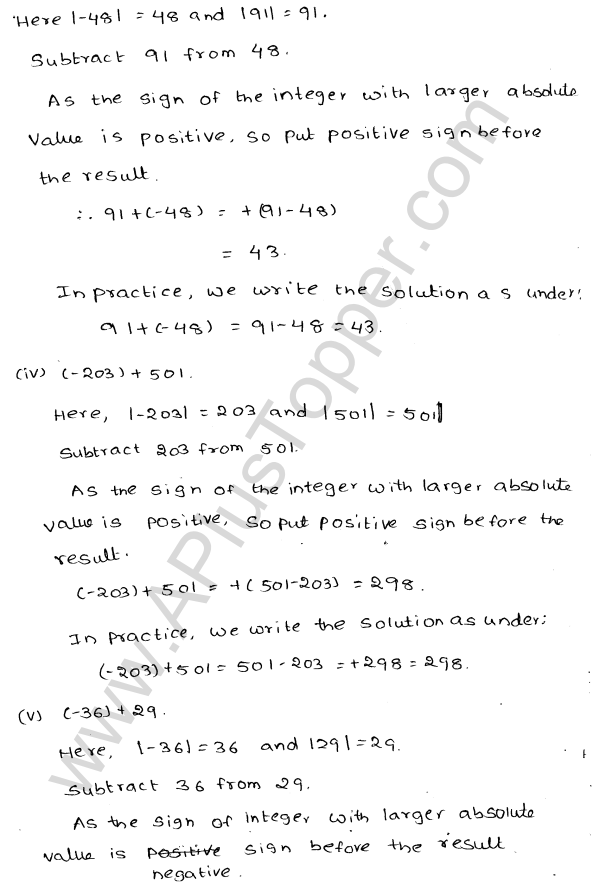 Here |-48| = 48 and |91| = 91.
Subtract 91 from 48.
As the sign of the integer with larger absolute
value is positive, so put positive sign before
the result.
∴ 91+(-48) = +(91-48)
= 43.
In practice, we write the solution as under:
91+(-48) = 91-48 = 43.
(iv) (-203) + 501.
Here, |-203| = 203 and |501| = 501
Subtract 203 from 501.
As the sign of the integer with larger absolute
value is positive, so put positive sign before the
result.
(-203) + 501 = +(501-203) = 298.
In practice, we write the solution as under:
(-203)+501 = 501-203 = +298 = 298.
(v) (-36) + 29.
Here, |-36| = 36 and |29| = 29.
Subtract 36 from 29.
As the sign of integer with larger absolute
value is positive sign before the result
negative.
www.APlusTopper.com